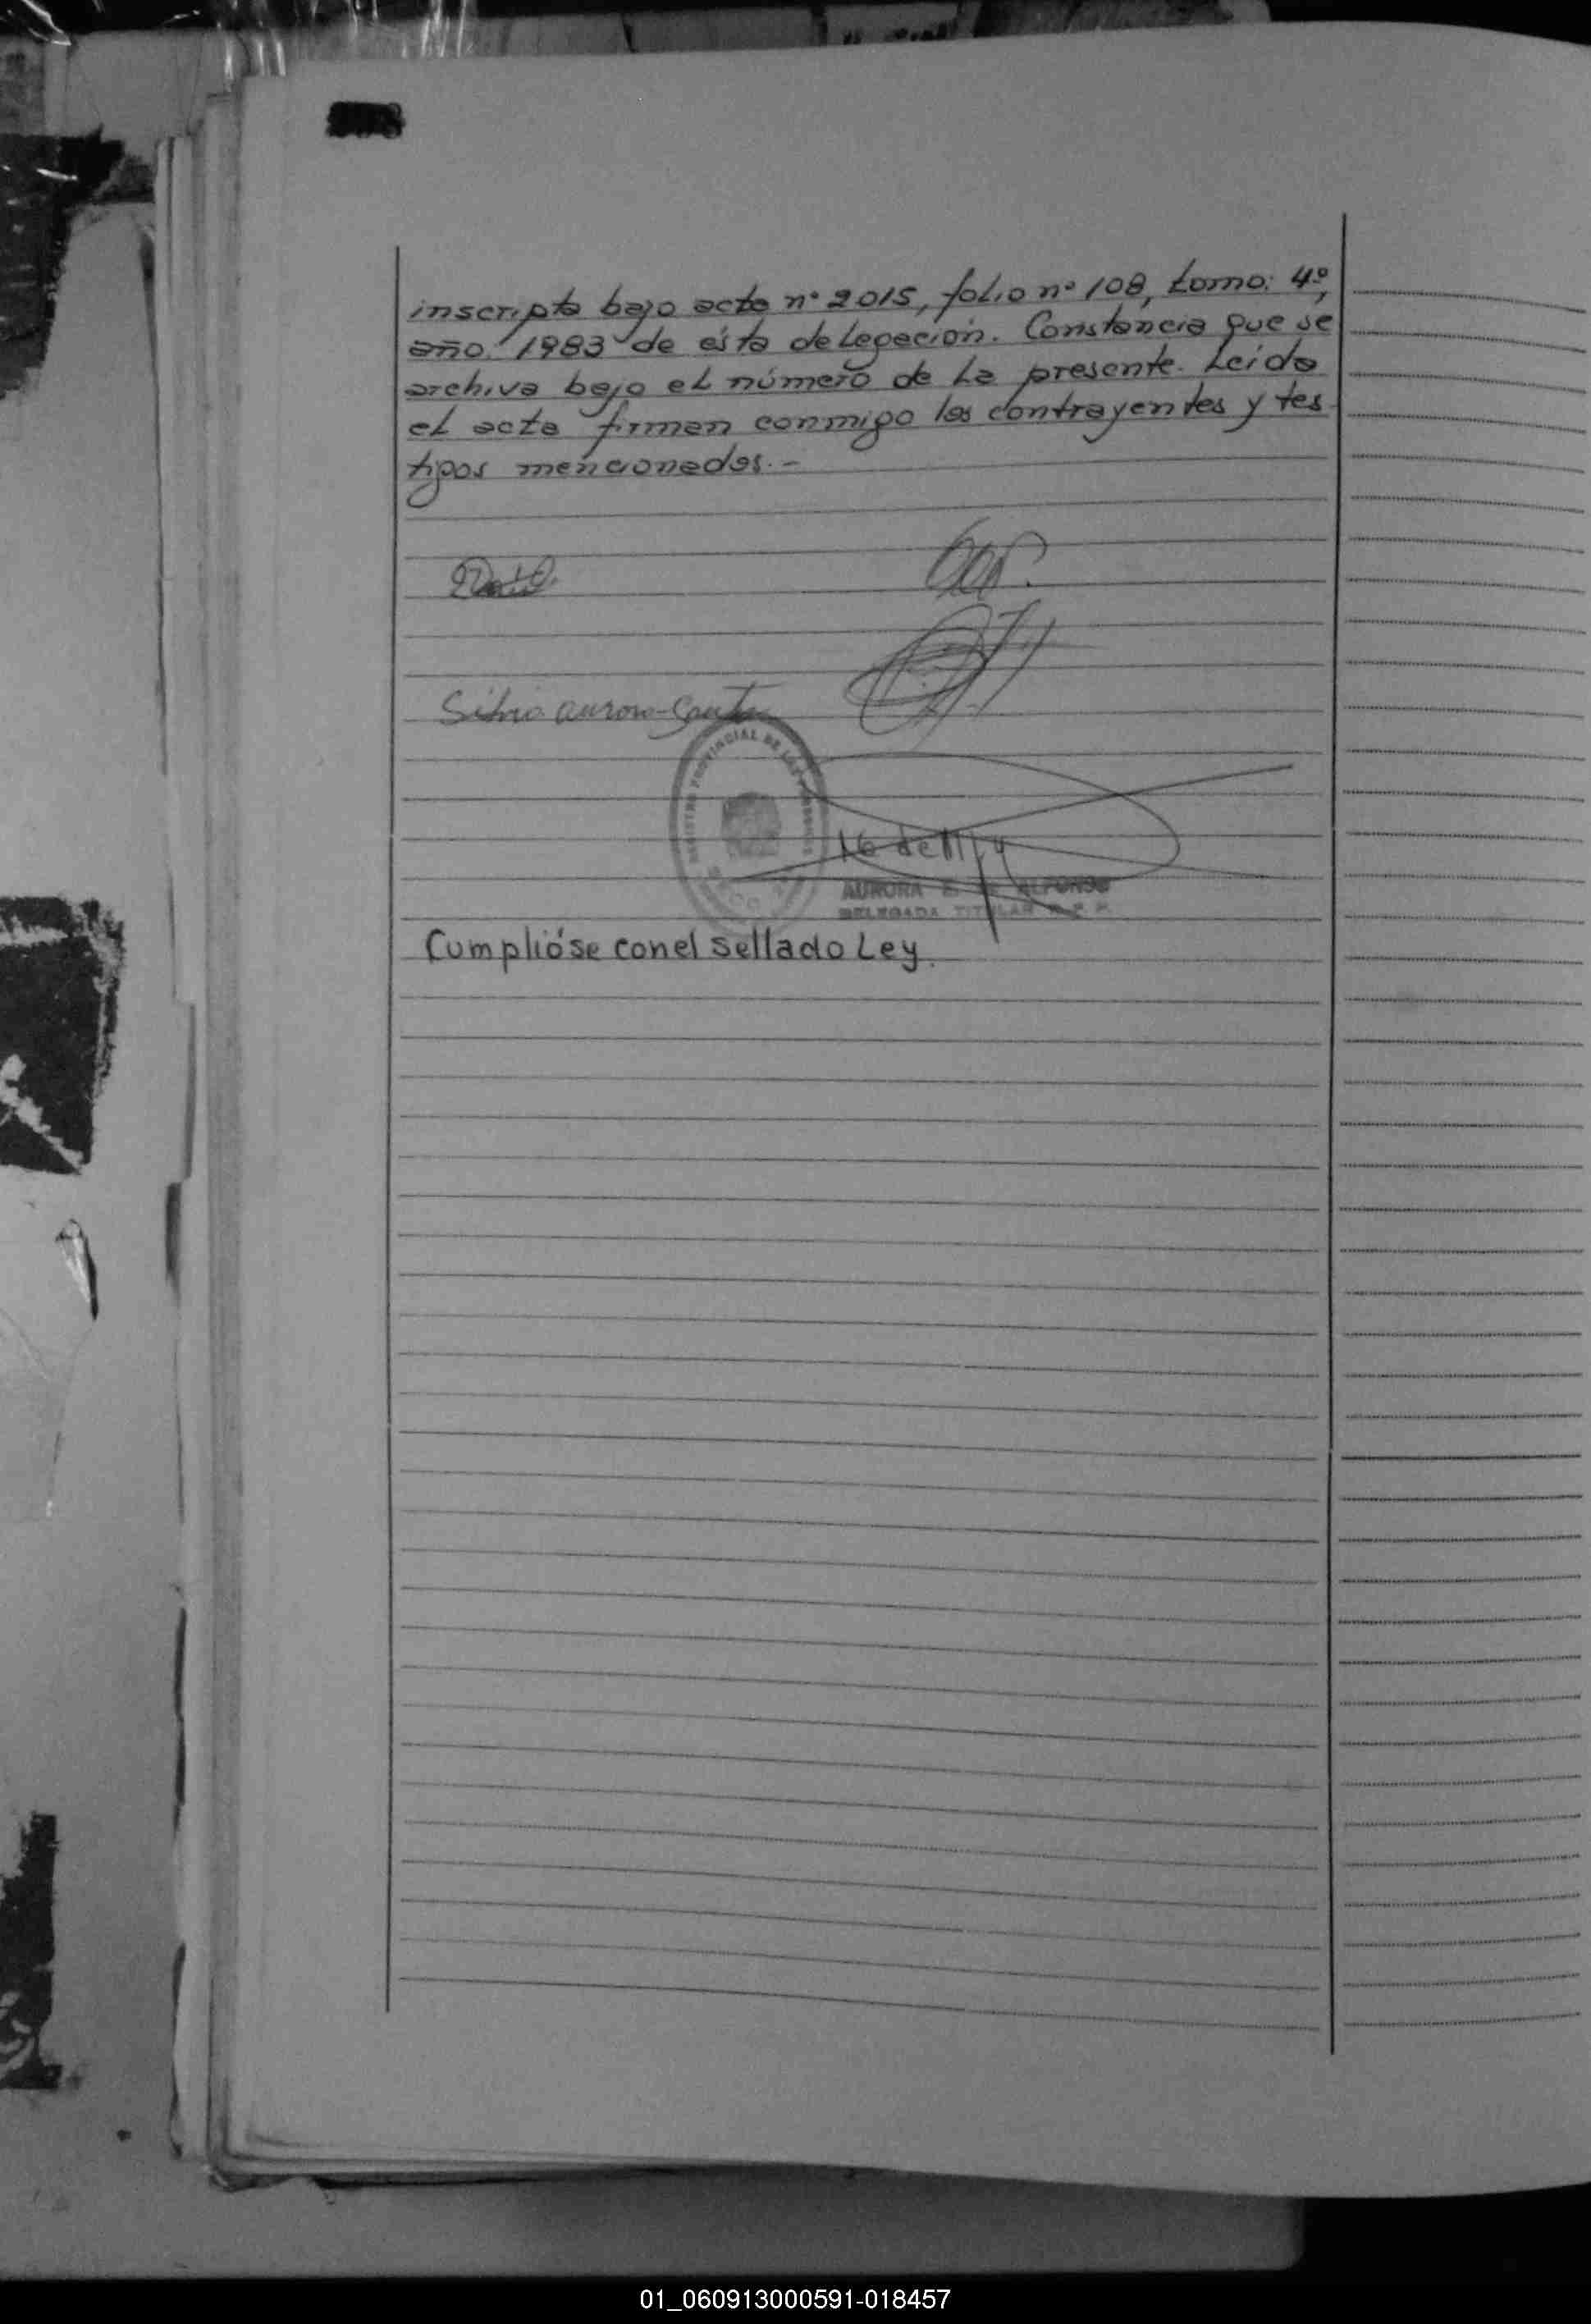 inscripta bajo acta nº 2015, folio nº 108, tomo: 4º,
año: 1983 de ésta delegación. Constancia que se
archiva bajo el número de la presente. Leída
el acta firman conmigo los contrayentes y tes
tigos mencionados.-
Silvia aurora
REGISTRO PROVINCIAL DE LAS PERSONAS
AURORA E. de ALFONSO
DELEGADA TITULAR R. P. P.
Cumplióse con el sellado Ley.
01_060913000591-018457